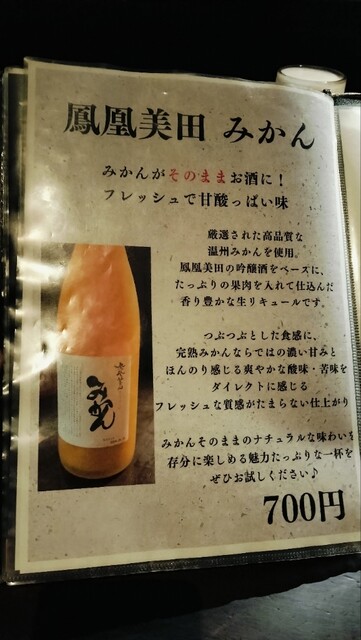 鳳凰美田 みかん
みかんがそのままお酒に!
フレッシュで甘酸っぱい味
厳選された高品質な
温州みかんを使用。
鳳凰美田の吟醸酒をベースに、
たっぷりの果肉を入れて仕込んだ
香り豊かな生リキュールです。
つぶつぶとした食感に、
完熟みかんならではの濃い甘みと
ほんのり感じる爽やかな酸味・苦味を
ダイレクトに感じる
フレッシュな質感がたまらない仕上がり
みかんそのままのナチュラルな味わいを
存分に楽しめる魅力たっぷりな一杯を
ぜひお試しください♪
700円
みかん